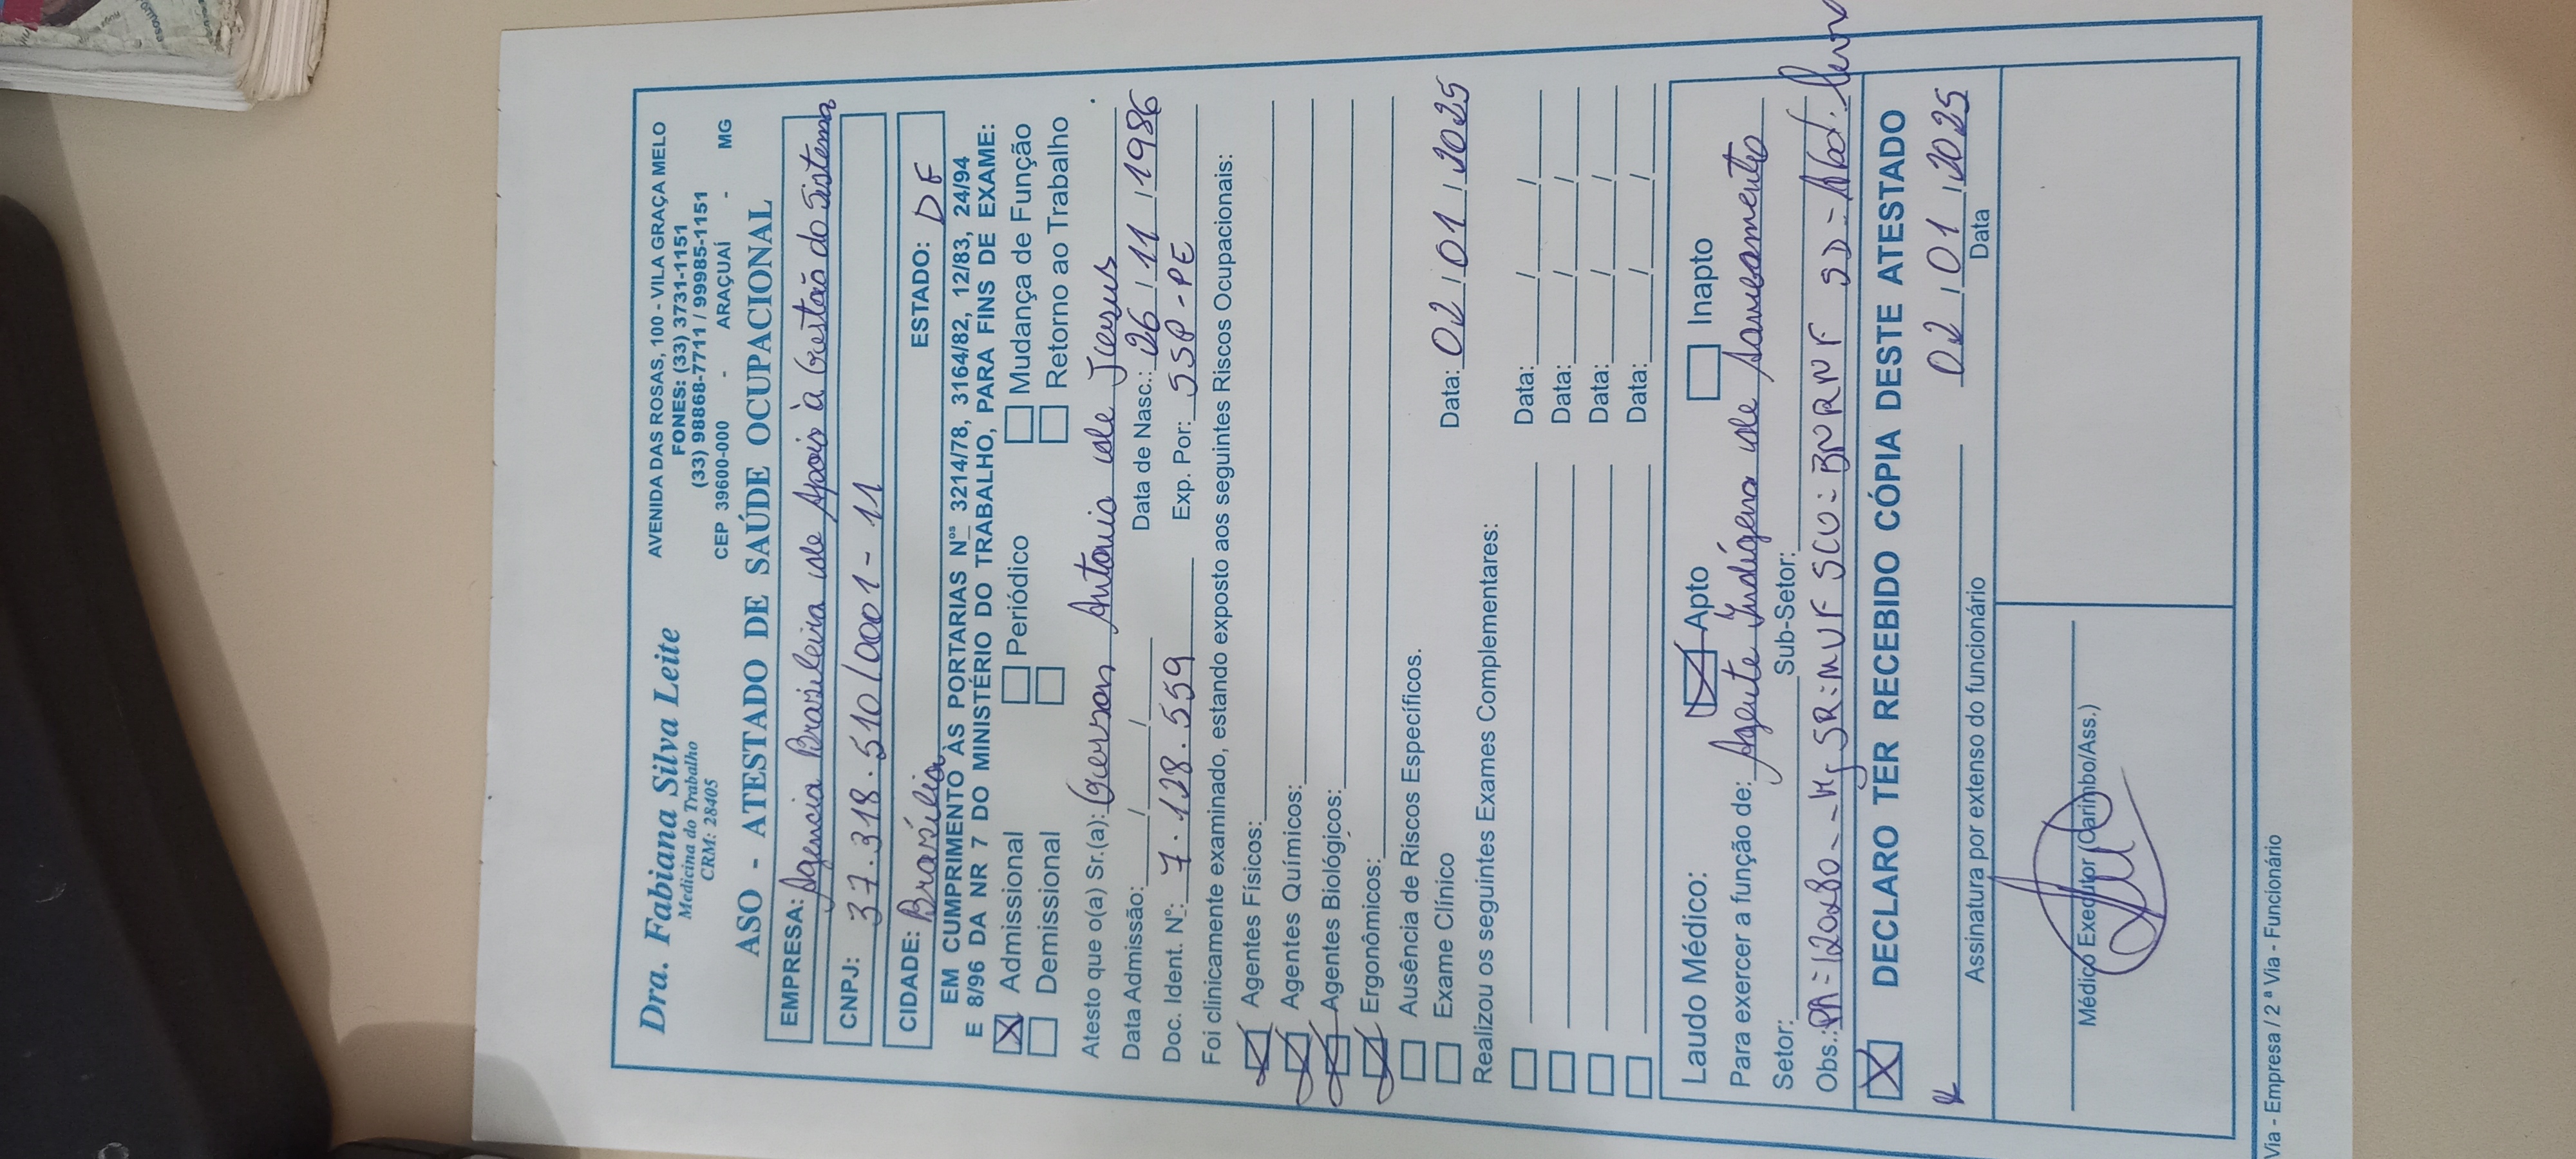 Dra. Fabiana Silva Leite
Medicina do Trabalho
CRM: 28405
AVENIDA DAS ROSAS, 100 - VILA GRAÇA MELO
FONES: (33) 3731-1151
(33) 98868-7711 / 99985-1151
CEP 39600-000 - ARAÇUAÍ - MG
ASO - ATESTADO DE SAÚDE OCUPACIONAL
EMPRESA: Agencia Brasileira de Apoio à Gestão do Sistema
CNPJ: 37.318.510/0001-11
CIDADE: Brasília ESTADO: DF
EM CUMPRIMENTO ÀS PORTARIAS Nºs 3214/78, 3164/82, 12/83, 24/94
E 8/96 DA NR 7 DO MINISTÉRIO DO TRABALHO, PARA FINS DE EXAME:
Admissional Periódico Mudança de Função
Demissional Retorno ao Trabalho
Atesto que o(a) Sr.(a): Gerson Antonio de Jesus
Data Admissão: / / Data de Nasc.: 26/11/1986
Doc. Ident. Nº: 7.128.559 Exp. Por: SSP-PE
Foi clinicamente examinado, estando exposto aos seguintes Riscos Ocupacionais:
Agentes Físicos:
Agentes Químicos:
Agentes Biológicos:
Ergonômicos:
Ausência de Riscos Específicos.
Exame Clínico Data: 02/01/2025
Realizou os seguintes Exames Complementares:
Data: / /
Data: / /
Data: / /
Data: / /
Laudo Médico: Apto Inapto
Para exercer a função de: Agente Indígena de Saneamento
Setor: Sub-Setor:
Obs.: PA=120x80 SR: MVF SCV= BNRNF SD=Abd.
DECLARO TER RECEBIDO CÓPIA DESTE ATESTADO
02/01/2025
Assinatura por extenso do funcionário Data
Médico Executor (Carimbo/Ass.)
Via - Empresa / 2ª Via - Funcionário